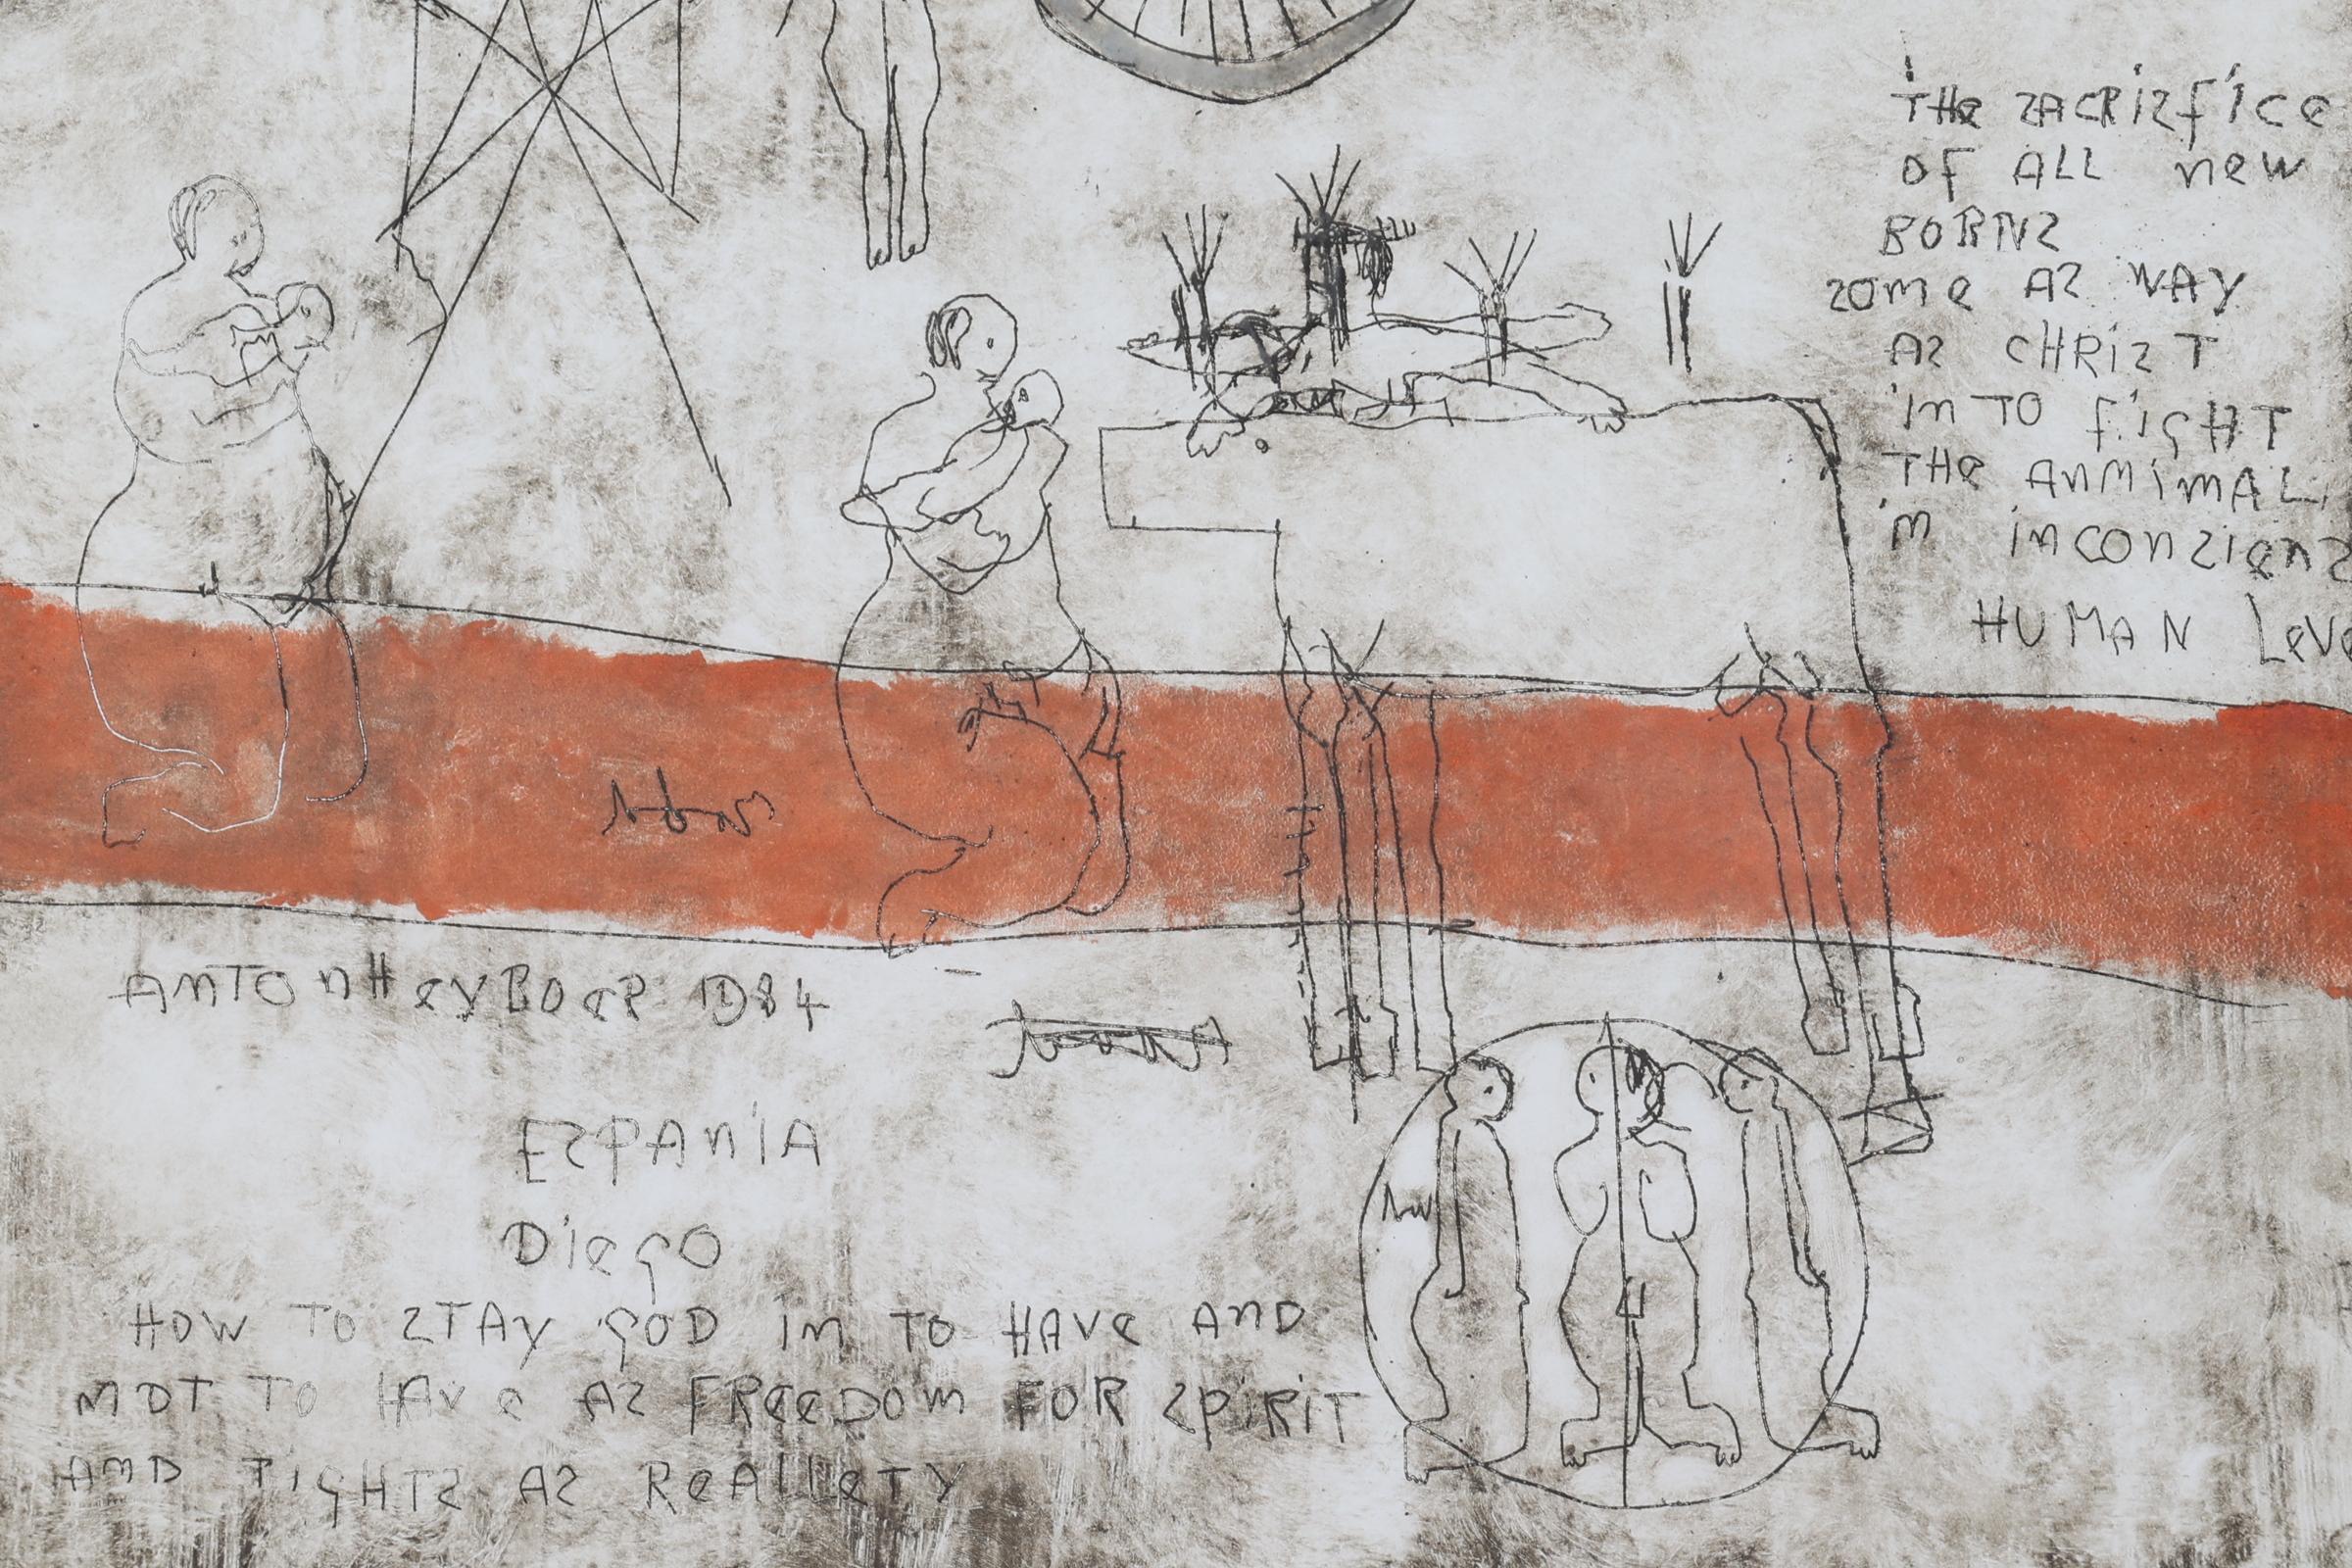 THe SACRiSfice
OF ALL new
BORNS
SOMe AS WAY
AS CHRiST
in TO FigHT
THe AnMimAL
im inconsiens
HUMAN LeVe
AnTOnHeyBOeR 1984
ESPAniA
DiegO
HOW TO STAy gOD in TO HAVe AnD
NOT TO HAve AS FReeDOm FOR SPiRiT
AnD TigHTS AS ReALLeTY